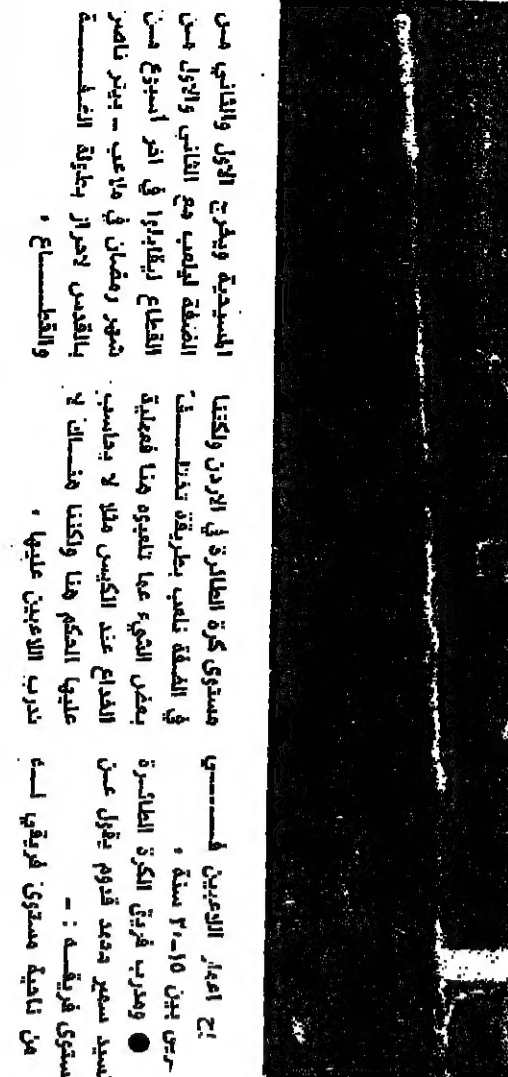 اعمار اللاعبين فــــي
بين ١٥-٣٠ سنة .
● ومدرب فريق الكرة الطائرة
سمير محمد قدوم يقول عن
فريقــه : -
من ناحية مستوى فريقي
مستوى كرة الطائرة في الاردن ولكننا
في الضفة نلعب بطريقة تختلــــف
بعض الشيء عما تلعبوه هنا فعملية
الخداع عند الكبس مثلا لا يحاسب
عليها الحكم هنا ولكننا هنــاك لا
ندرب اللاعبين عليها .
المسيحية ويخرج الاول والثاني من
الضفة ليلعب مع الثاني والاول من
القطاع ليقابلوا في اخر أسبوع من
شهر رمضان في ملاعب - بيتر ناصر
بالقدس لاحراز بطولة الضفــــة
والقطــــاع .